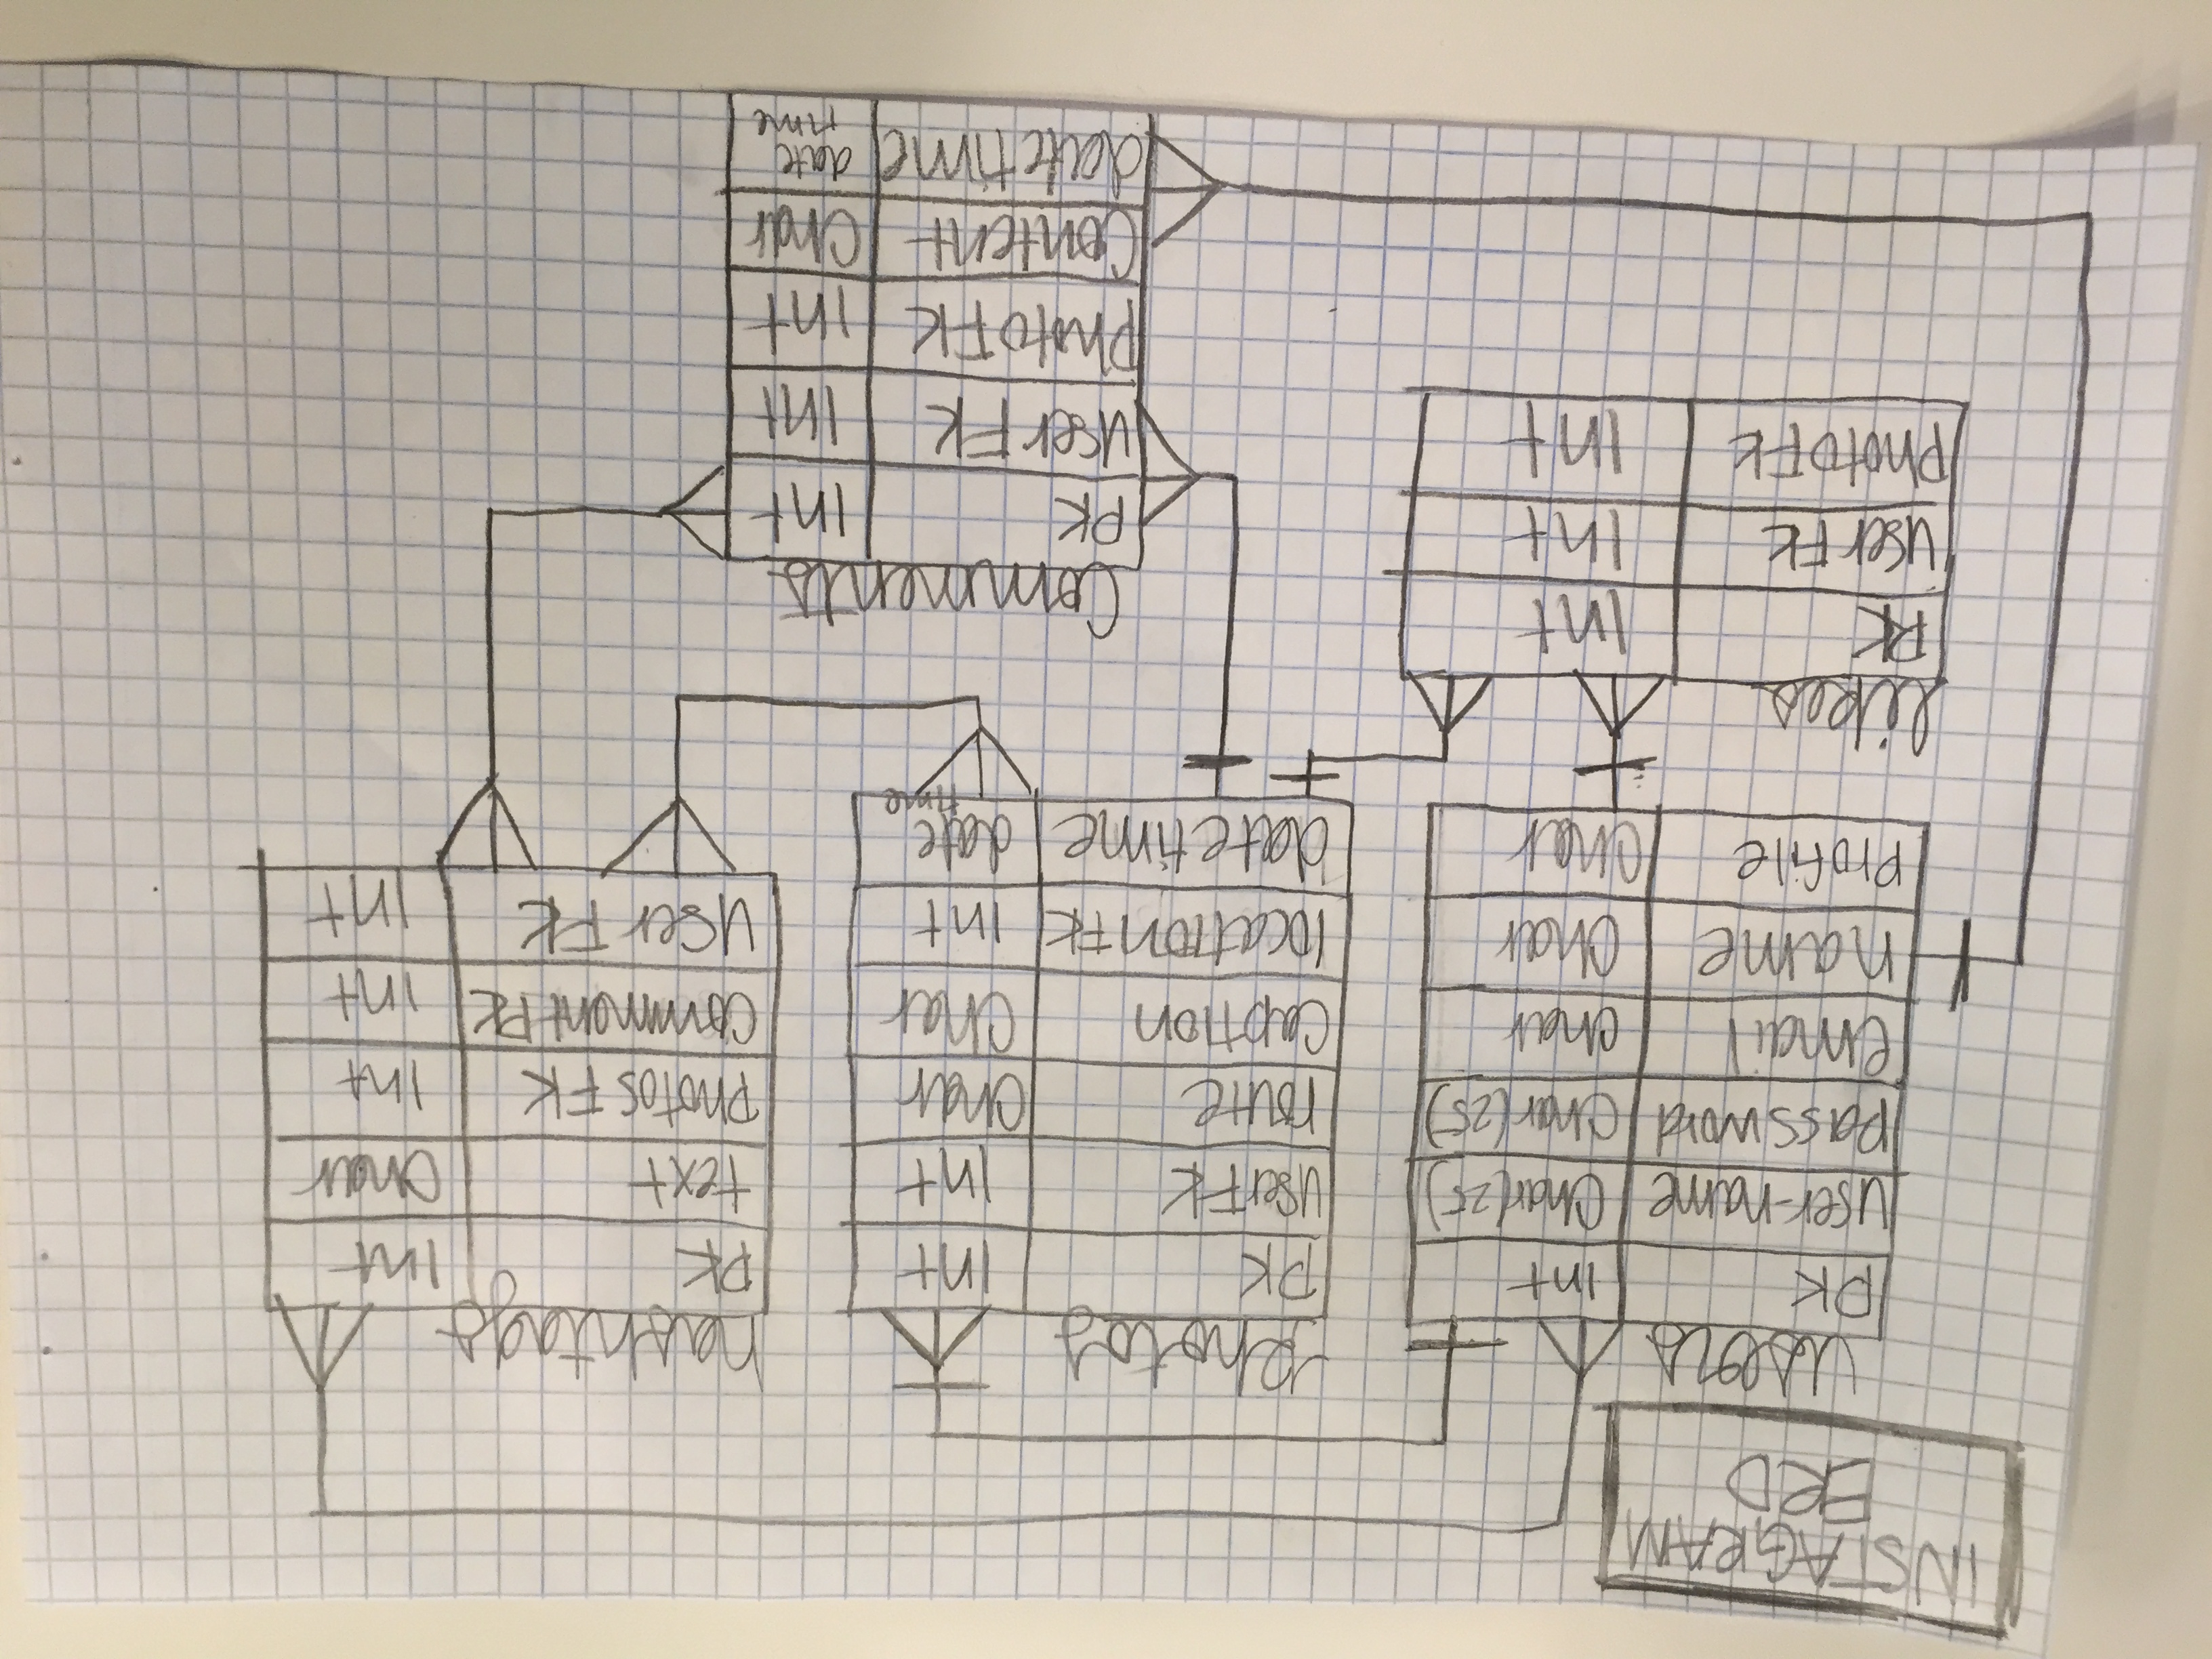 INSTAGRAM
ERD
Users
PK Int
User-name Char(25)
Password Char(25)
email char
name Char
Profile Char
Photos
PK Int
userFK Int
route Char
Caption Char
locationFK Int
datetime date time
hashtags
PK Int
text Char
Photos FK Int
Comment FK Int
User FK Int
likes
PK Int
User FK Int
PhotoFK Int
Comments
PK Int
User FK Int
PhotoFK Int
Content Char
datetime date time